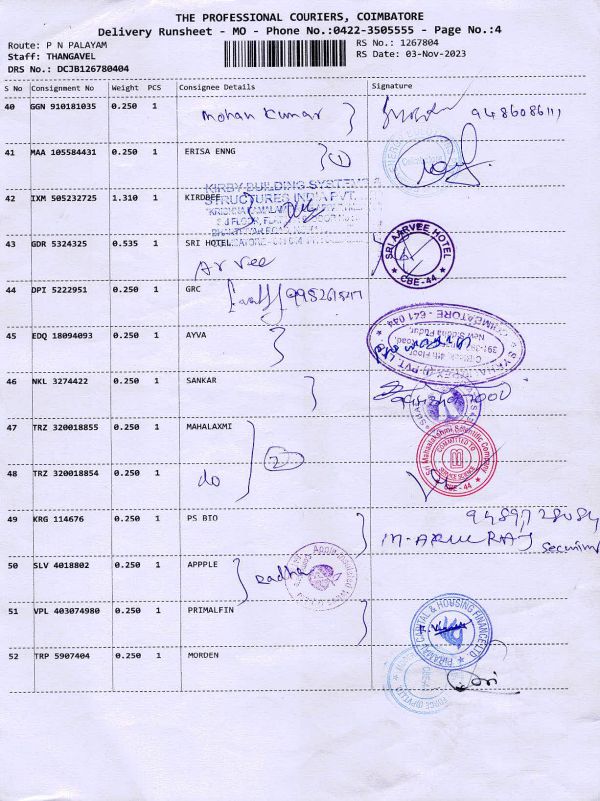 THE PROFESSIONAL COURIERS, COIMBATORE
Delivery Runsheet - MO - Phone No.:0422-3505555 - Page No.:4
Route: P N PALAYAM RS No.: 1267804
Staff: THANGAVEL RS Date: 03-Nov-2023
DRS No.: DCJB126780404
S No Consignment No Weight PCS Consignee Details Signature
40 GGN 910181035 0.250 1 Mohan Kumar 9486086111
41 MAA 105584431 0.250 1 ERISA ENNG 1
KIRBY BUILDING SYSTEMS
STRUCTURES INDIA PVT.
42 IXM 505232725 1.310 1 KIRDBEE
43 GDR 5324325 0.535 1 SRI HOTEL
Arvee
SRI AARVEE HOTEL
CBE-44
44 DPI 5222951 0.250 1 GRC
COIMBATORE - 641 044
45 EDQ 18094093 0.250 1 AYVA
4th Floor
46 NKL 3274422 0.250 1 SANKAR
47 TRZ 320018855 0.250 1 MAHALAXMI
2
Sri Mahalakshmi Scientific Company
COMMITTED TO
SERVICE SCIENCE
CBE-44
48 TRZ 320018854 0.250 1 do
49 KRG 114676 0.250 1 PS BIO
M. ARUL RAJ
50 SLV 4018802 0.250 1 APPPLE radha
51 VPL 403074980 0.250 1 PRIMALFIN
CAPITAL & HOUSING FINANCE LTD
52 TRP 5907404 0.250 1 MORDEN